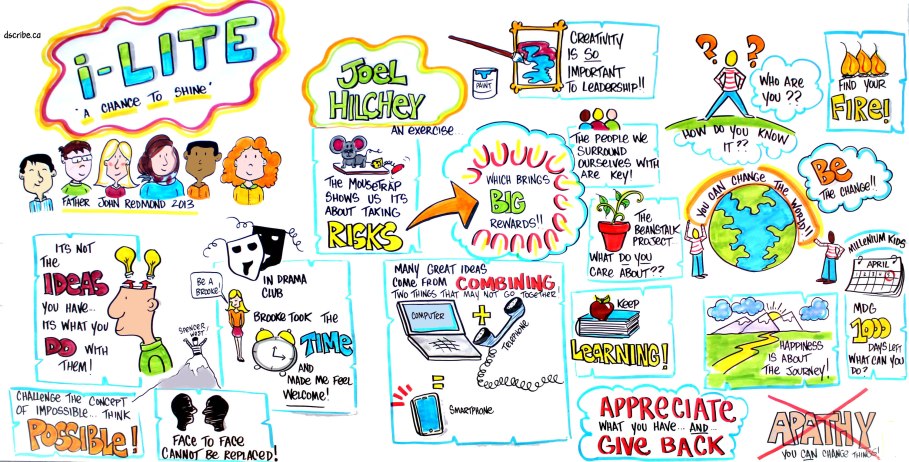 dscribe.ca
i-LITE
"A CHANCE TO SHINE"
FATHER JOHN REDMOND 2013
JOEL
HILCHEY
AN EXERCISE...
THE MOUSETRAP
SHOWS US ITS
ABOUT TAKING
RISKS
WHICH BRINGS
BIG
REWARDS!!
PAINT
CREATIVITY
IS SO
IMPORTANT
TO LEADERSHIP!!
THE PEOPLE WE
SURROUND
OURSELVES WITH
ARE KEY!
THE
BEANSTALK
PROJECT
WHAT DO YOU
CARE ABOUT??
KEEP
LEARNING!
? ?
WHO ARE
YOU??
HOW DO YOU KNOW
IT??
FIND YOUR
FIRE!
BE
THE CHANGE!!
YOU CAN CHANGE THE WORLD!!
MILLENIUM KIDS
APRIL
MDG
1000
DAYS LEFT
WHAT CAN YOU
DO?
HAPPINESS
IS ABOUT
THE JOURNEY!
ITS NOT
THE
IDEAS
YOU HAVE...
ITS WHAT YOU
DO WITH
THEM!
IN DRAMA
CLUB
BE A
BROOKE!
BROOKE TOOK THE
TIME
AND
MADE ME FEEL
WELCOME!
SPENCER WEST
CHALLENGE THE CONCEPT
OF IMPOSSIBLE... THINK
POSSIBLE!
FACE TO FACE
CANNOT BE REPLACED!
MANY GREAT IDEAS
COME FROM COMBINING
TWO THINGS THAT MAY NOT GO TOGETHER
COMPUTER
+
TELEPHONE
=
SMARTPHONE
APPRECIATE
WHAT YOU HAVE... AND...
GIVE BACK
APATHY
YOU CAN CHANGE THINGS!